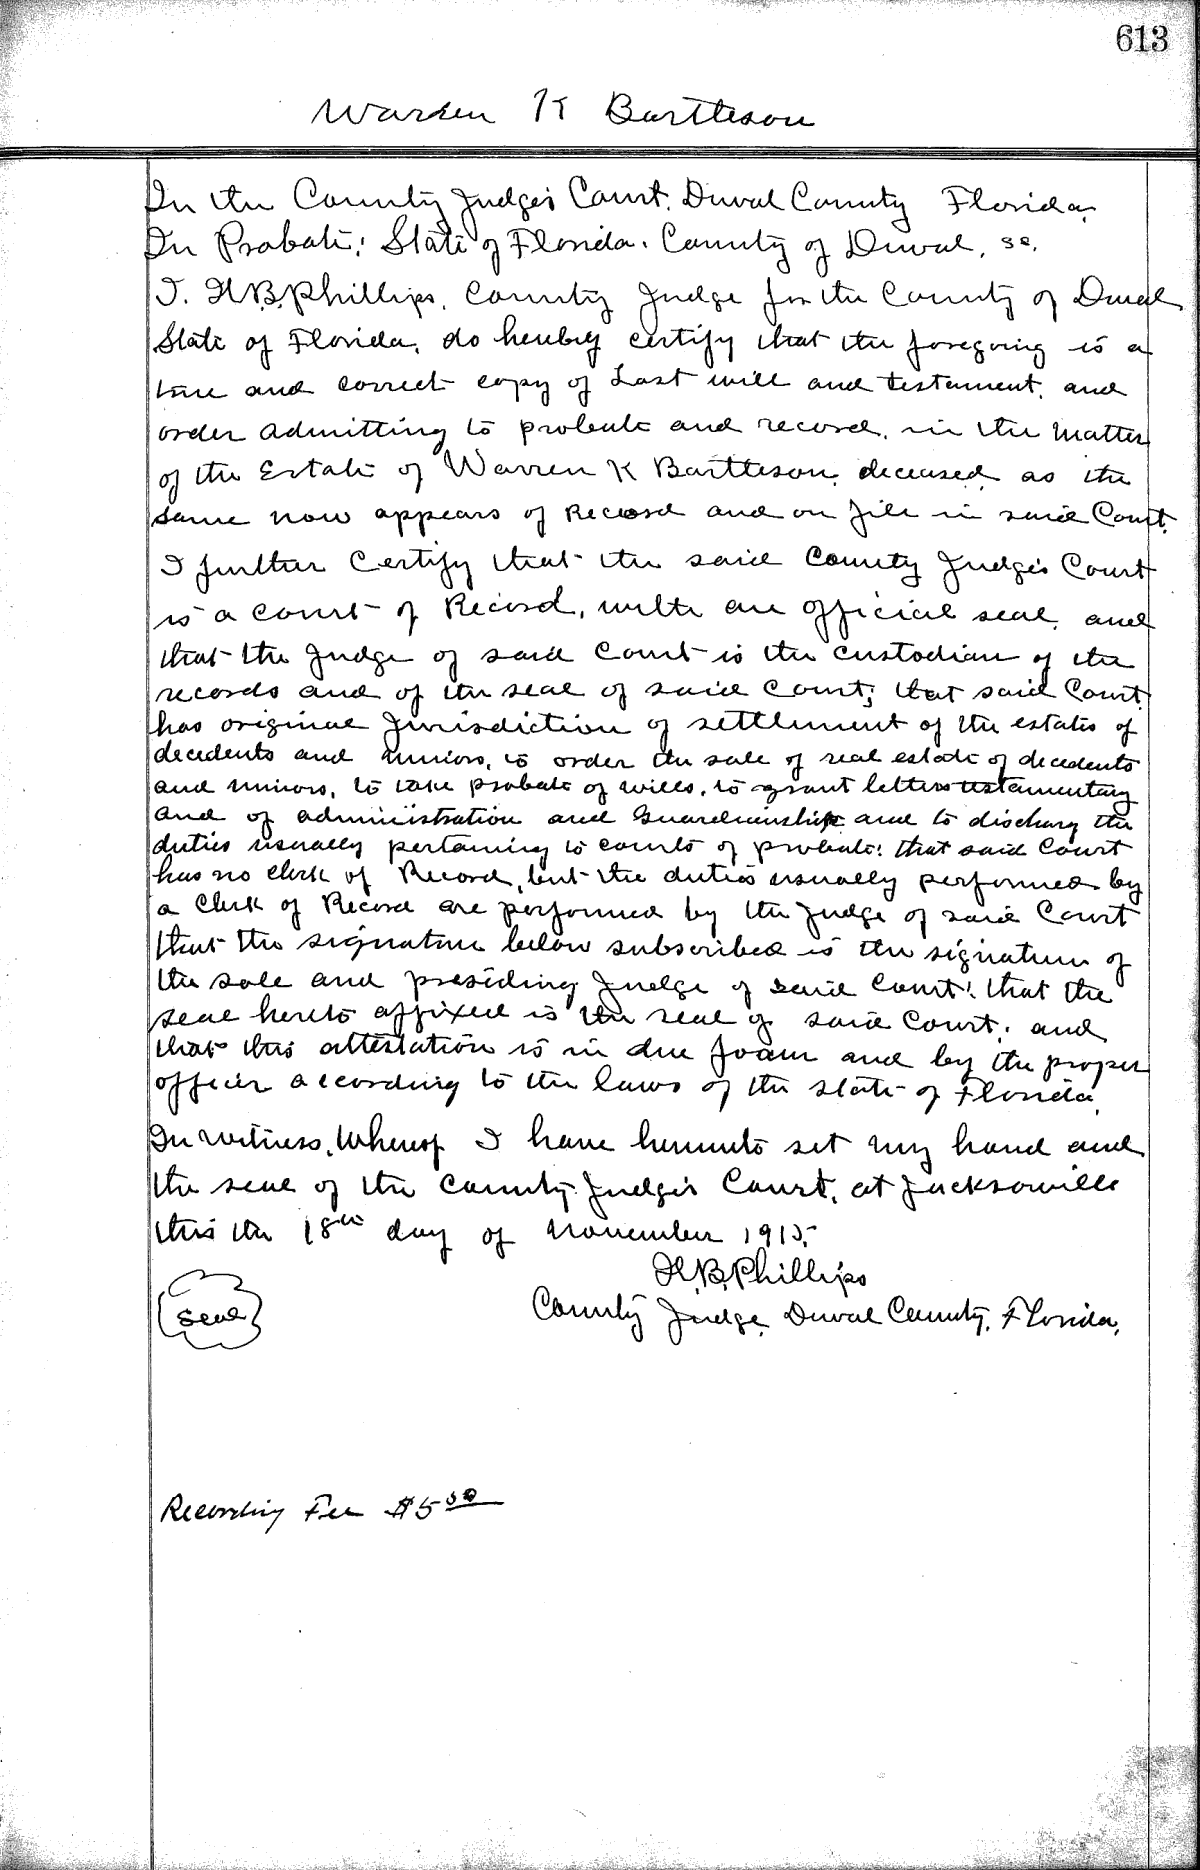 613
Warren K Bartteson
In the County Judge's Court. Duval County Florida.
In Probate: State of Florida. County of Duval, ss.
I. H.B. Phillips, County Judge for the County of Duval
State of Florida, do hereby certify that the foregoing is a
true and correct copy of Last will and testament, and
order admitting to probate and record, in the matter
of the Estate of Warren K Bartteson, deceased, as the
same now appears of Record and on file in said Court.
I further certify that the said County Judge's Court
is a court of Record, with an official seal, and
that the Judge of said Court is the custodian of the
records and of the seal of said Court; that said Court
has original Jurisdiction of settlement of the estates of
decedents and minors, to order the sale of real estate of decedents
and minors, to take probate of wills, to grant letters testamentary
and of administration and Guardianship and to discharg the
duties usually pertaining to courts of probate: that said Court
has no clerk of Record, but the duties usually performed by
a Clerk of Record are performed by the Judge of said Court
that the signature below subscribed is the signature of
the sole and presiding Judge of said Court: that the
seal hereto affixed is the seal of said Court; and
that this attestation is in due form and by the proper
officer according to the laws of the State of Florida.
In Witness, Whereof I have hereunto set my hand and
the seal of the County Judge's Court, at Jacksonville
this the 18th day of November 1915.
H.B. Phillips
Seal
County Judge, Duval County, Florida.
Recording Fee $5.50